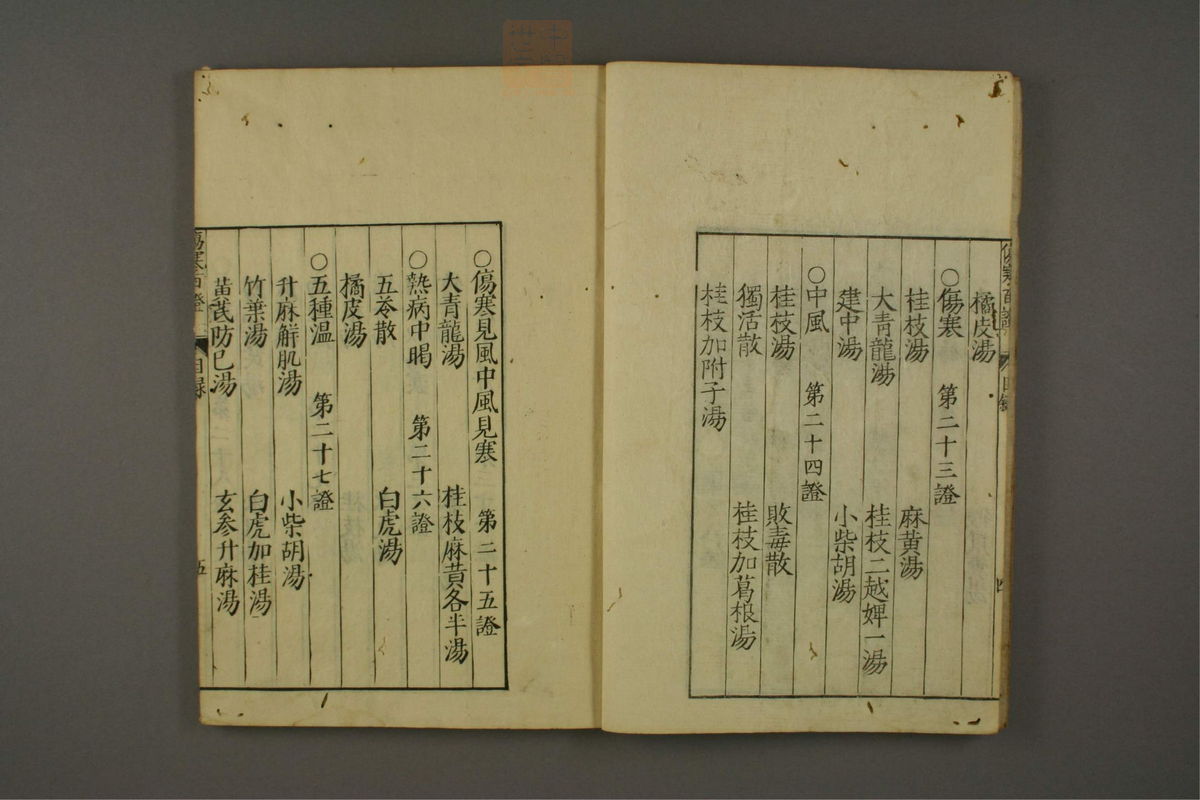 橘皮湯
○傷寒 第二十三證
桂枝湯 麻黃湯
大青龍湯 桂枝二越婢一湯
建中湯 小柴胡湯
○中風 第二十四證
桂枝湯 敗毒散
獨活散 桂枝加葛根湯
桂枝加附子湯
○傷寒見風中風見寒 第二十五證
大青龍湯 桂枝麻黃各半湯
○熱病中暍 第二十六證
五苓散 白虎湯
橘皮湯
○五種温 第二十七證
升麻觧肌湯 小柴胡湯
竹葉湯 白虎加桂湯
防巳湯 玄参升麻湯
傷寒百證 目録 五